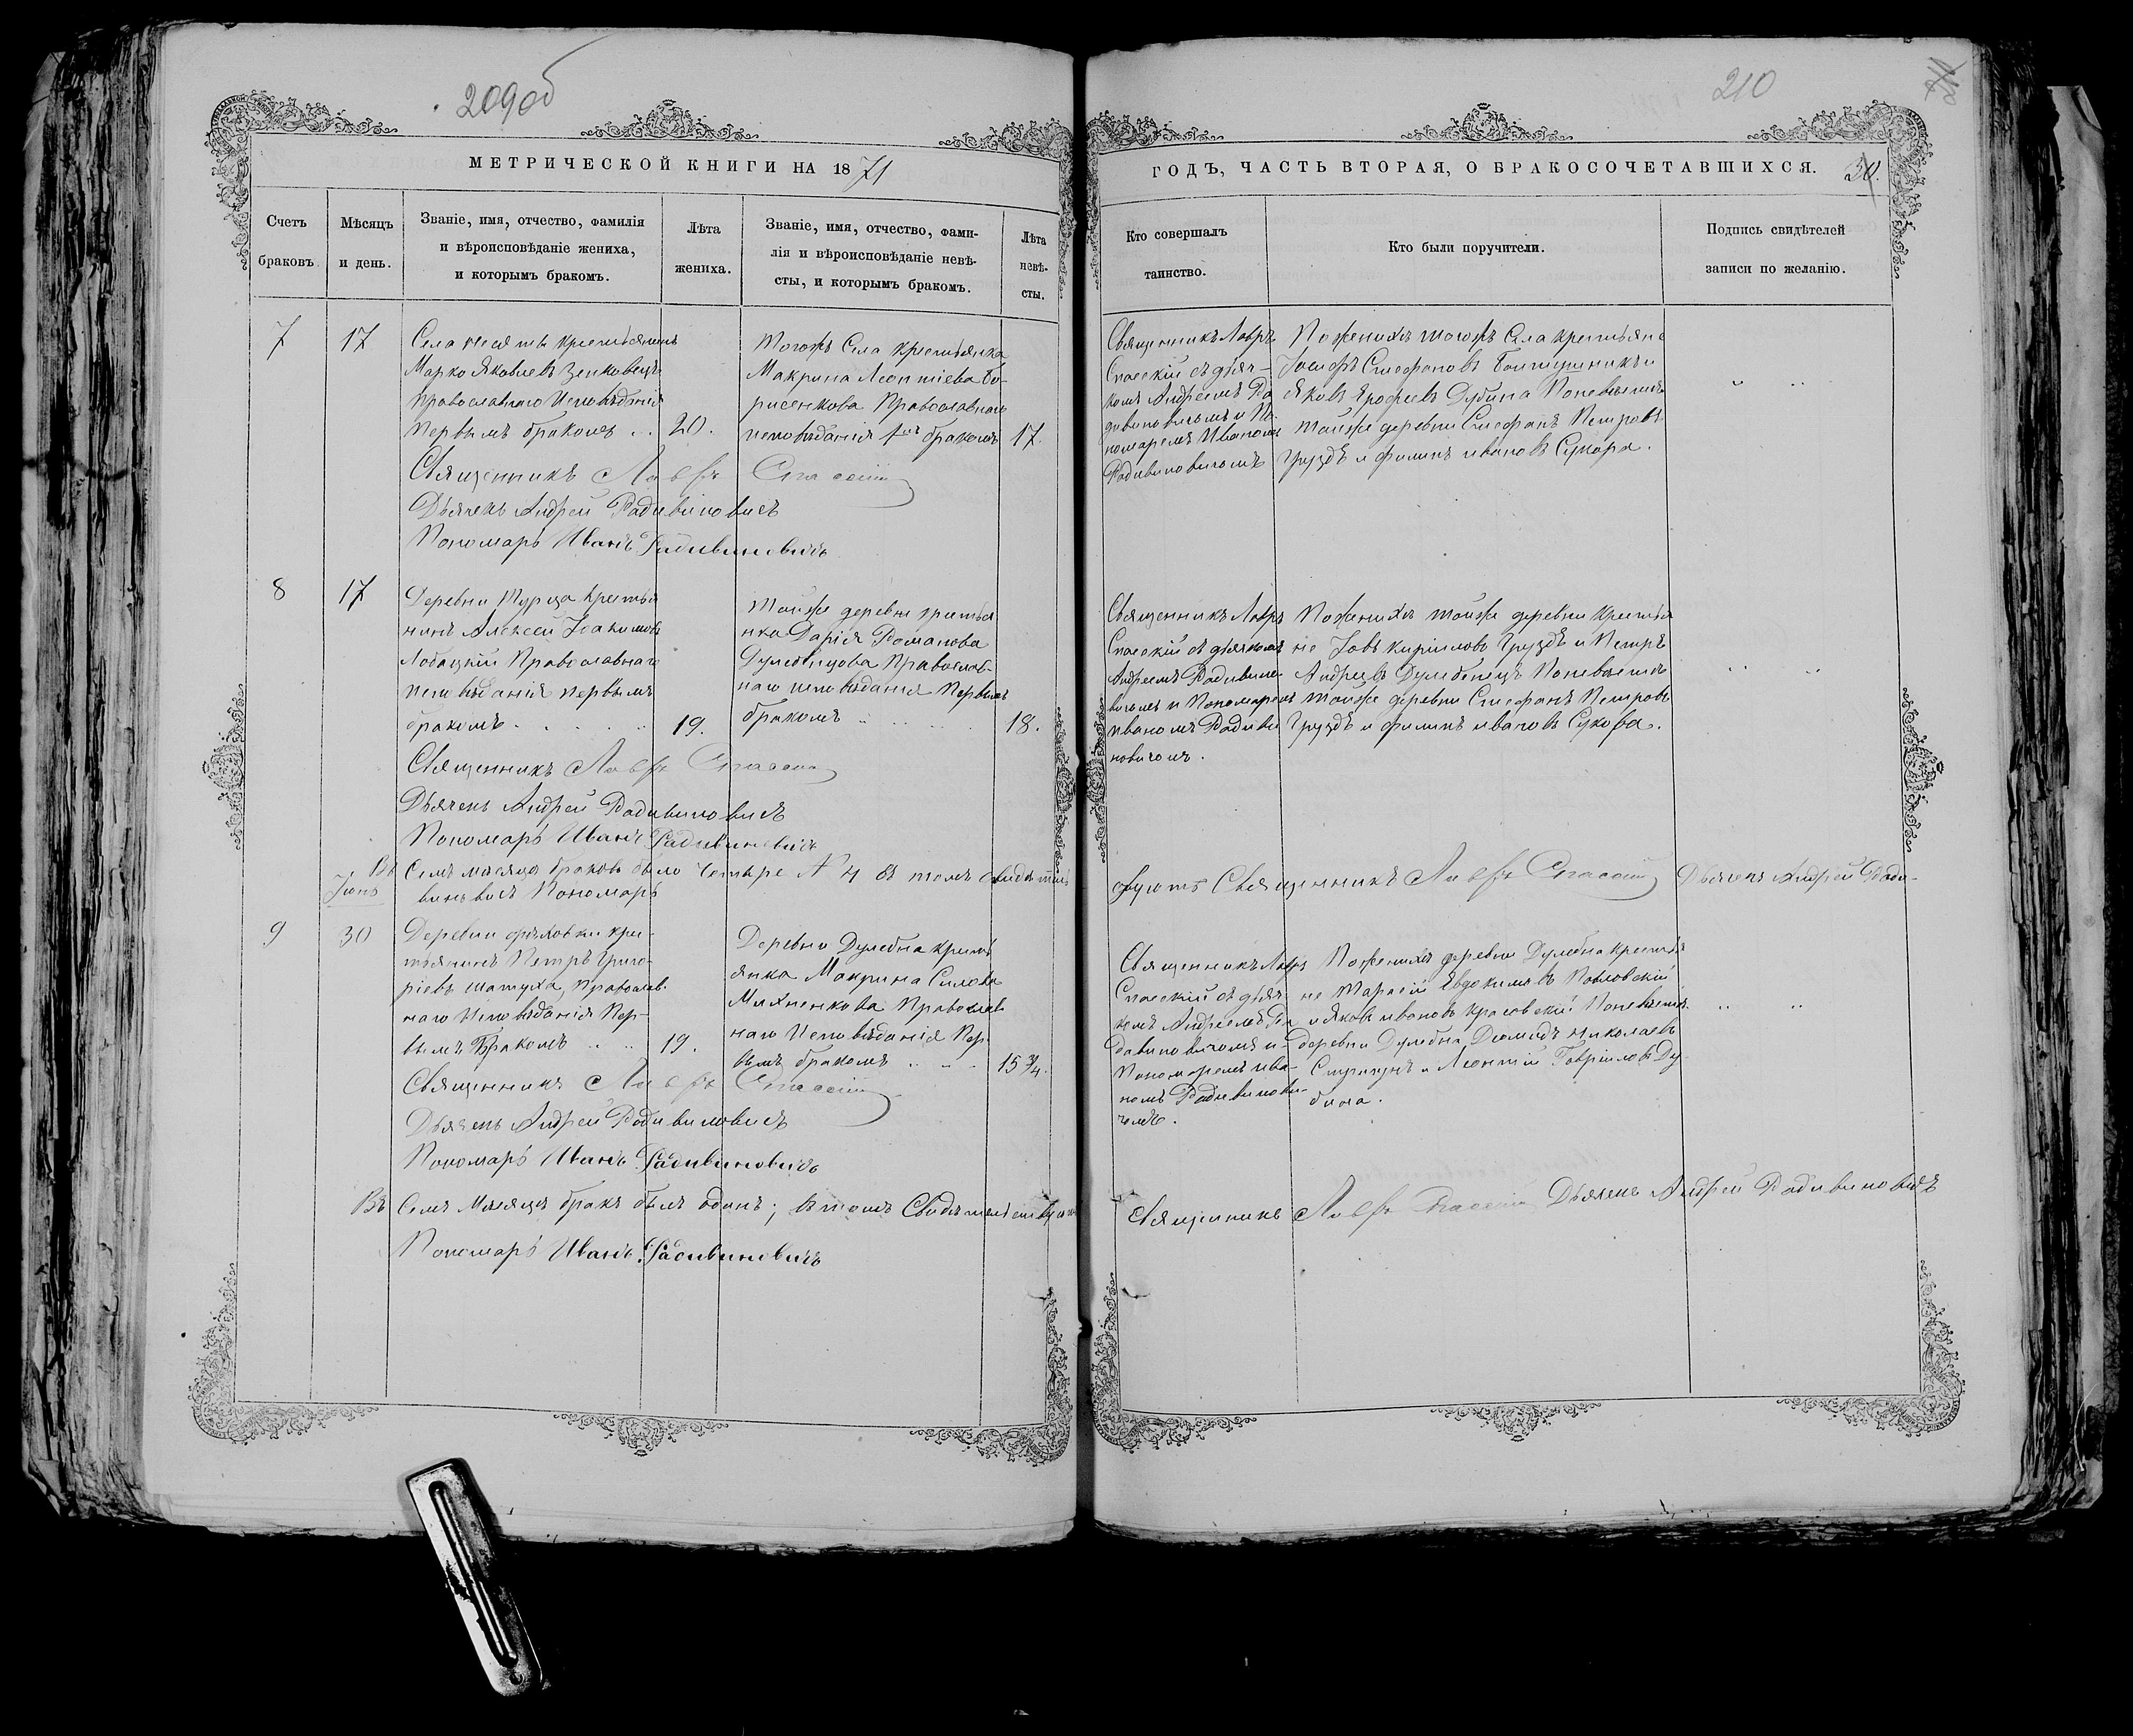 209об
МЕТРИЧЕСКОЙ КНИГИ НА 1871
Счетъ браковъ.
Мѣсяцъ и день.
Званіе, имя, отчество, фамилія
и вѣроисповѣданіе жениха,
и которымъ бракомъ.
Лѣта
жениха.
Званіе, имя, отчество, фами-
лія и вѣроисповѣданіе невѣ-
сты, и которымъ бракомъ.
Лѣта
невѣ-
сты.
7
17
Села крестьянинъ
Марко Яковлевъ Зенковецъ
Православнаго Исповѣданія
первымъ бракомъ
20.
Тогожъ Села крестьянка
Макрина Леонтіева Бо-
рисенкова Православнаго
исповѣданія 1мъ бракомъ
17.
Священникъ Лавръ Спасскій
Дьячекъ Андрей Радивиновичъ
Пономарь Иванъ Радивиновичъ
8
17
Деревни Турца Крестья
нинъ Алексей Іоакимовъ
Лобацкій Православнаго
исповѣданія первымъ
бракомъ
19.
Тойже деревни крестья
нка Дарія Романова
Православ-
наго исповѣданія Первымъ
бракомъ
18.
Священникъ Лавръ Спасскій
Дьячекъ Андрей Радивиновичъ
Пономарь Иванъ Радивиновичъ
Въ Семъ мѣсяцѣ браковъ было четыре N 4 въ томъ свидѣтель
Пономарь
Іюнь
9
30
Деревни крес-
тьянинъ Петръ Григо-
ріевъ Шатуха, Православ-
наго Исповѣданія Пер-
вымъ Бракомъ
19.
Деревни Дулебна Кресть
янка Макрина Силова
Михненкова Православ
наго Исповѣданія Пер-
вымъ бракомъ
15 3/4.
Священникъ Лавръ Спасскій
Дьячекъ Андрей Радивиновичъ
Пономарь Иванъ Радивиновичъ
Въ Семъ Мѣсяцѣ бракъ былъ одинъ; въ томъ Свидѣтельствуютъ
Пономарь Иванъ Радивиновичъ
210
ГОДЪ, ЧАСТЬ ВТОРАЯ, О БРАКОСОЧЕТАВШИХСЯ.
30.
Кто совершалъ
таинство.
Кто были поручители.
Подпись свидѣтелей
записи по желанію.
Священникъ Лавръ
Спасскій съ дьяч-
комъ Андреемъ Ра
дивиновичемъ и По-
номаремъ Иваномъ
Радивиновичемъ
По женихѣ тогожъ Села крестьяне
Іосифъ Стефановъ и
Яковъ Ерофеевъ Дубина По невѣстѣ
тойже деревни Стефанъ Петровъ
Груздъ и Филипъ Ивановъ
Священникъ Лавръ
Спасскій съ дьячкомъ
Андреемъ Радивино
вичемъ и Пономаремъ
Иваномъ Радиви
новичемъ.
По женихѣ тойже деревни Крестья
не Іовъ Кириловъ Груздъ и Петръ
Андреевъ По невѣстѣ
тойже деревни Стефанъ Петровъ
Груздъ и Филипъ Ивановъ
ствуютъ Священникъ Лавръ Спасскій Дьячекъ Андрей Ради-
Священникъ Лавръ
Спасскій съ дьяч
комъ Андреемъ Ра
дивиновичемъ и
Пономаремъ Ива-
номъ Радивинови-
чемъ.
По женихѣ деревни Дулебна крестья
не Тарасій Евдокимовъ
и Яковъ Ивановъ Красовскій По невѣстѣ
деревни Дулебна Діомидъ Николаевъ
и Леонтій Гавріиловъ Ду-
бина.
Священникъ Лавръ Спасскій Дьячекъ Андрей Радивиновичъ